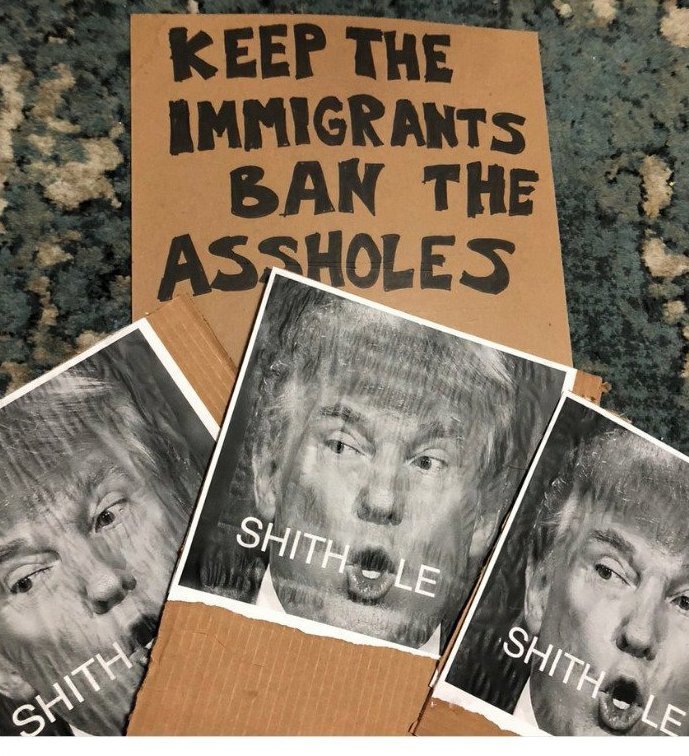 KEEP THE
IMMIGRANTS
BAN THE
ASSHOLES
SHITH LE
SHITH
SHITH LE